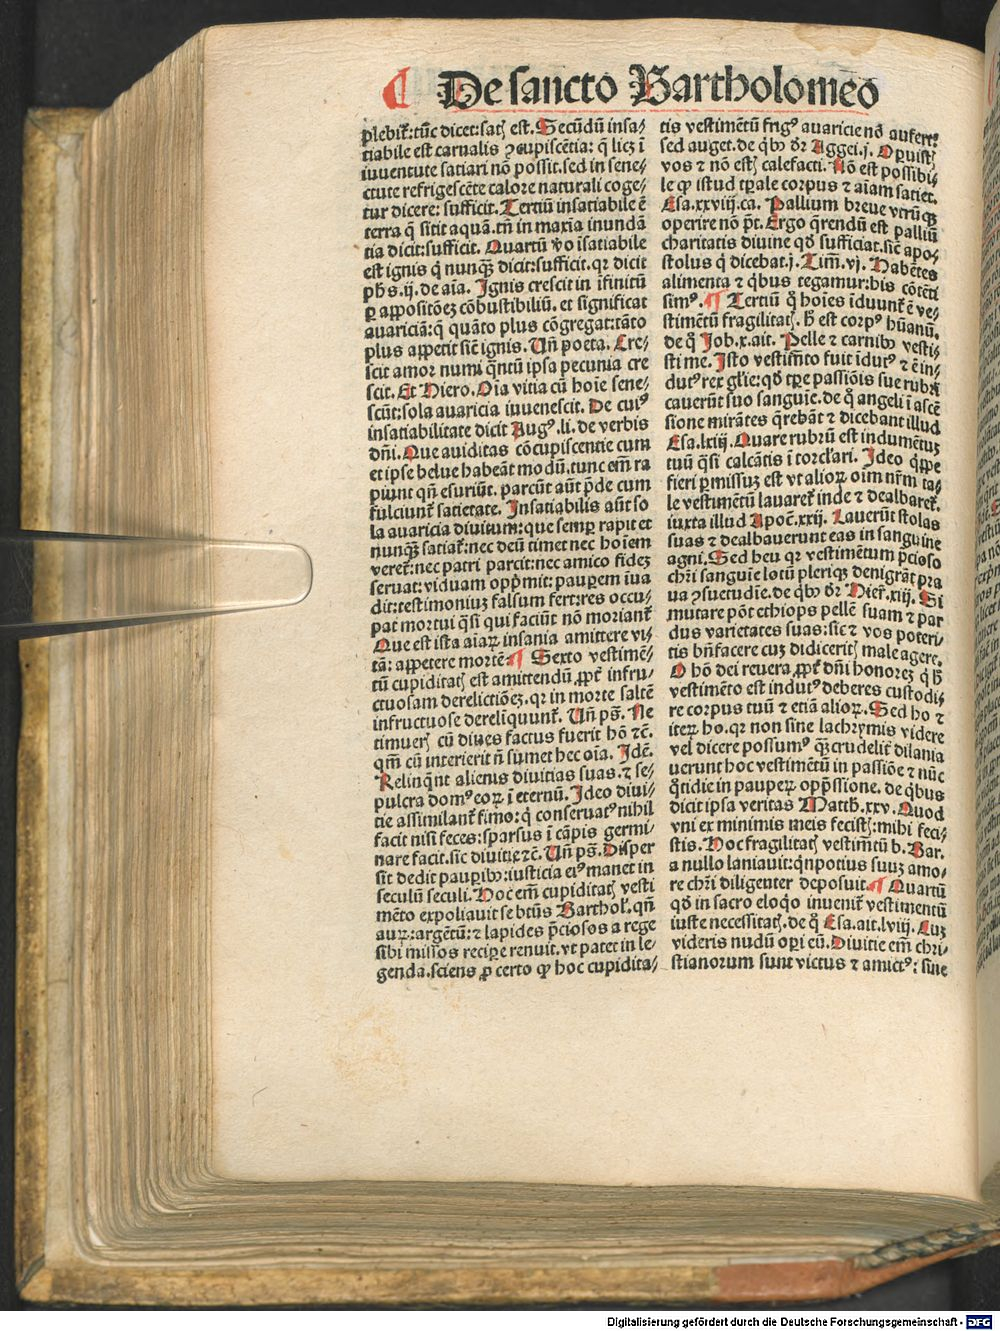 ¶ De sancto Bartholomeo
plebit᷑: tūc dicet: satꝭ est. Secūdū insa⸗
tiabile est carnalis ꝯcupiscētia: q̄ licꝫ ī
iuuentute satiari nō possit. sed in sene⸗
ctute refrigescēte calore naturali coge⸗
tur dicere: sufficit. Tertiū insatiabile ē
terra q̄ sitit aquā. tn̄ in maxīa inundā
tia dicit: sufficit. Quartū v̄o īsatiabile
est ignis q̇ nunqꝫ dicit: sufficit. qꝛ dicit
ph̄s. ij. de aīa. Ignis crescit in īfinitū
ꝑ appositōeꝫ cōbustibiliū. et significat
auariciā: q̄ quāto plus cōgregat: tāto
plus appetit sic̄ ignis. Un̄ poeta. Cre⸗
scit amor numi q̄ntū ipsa pecunia cre
scit. Et Hiero. Oīa vitia cū hoīe sene⸗
scūt: sola auaricia iuuenescit. De cuiꝰ
insatiabilitate dicit Augꝰ. li. de verbis
dn̄i. Que auiditas cōcupiscentie cum
et ipse belue habeāt modū. tunc em̄ ra
piunt qn̄ esuriūt. parcūt aūt p̄de cum
fulciunt᷑ satietate. Insatiabilis aūt so
la auaricia diuitum: que semper rapit et
nunqꝫ satiat᷑: nec deū timet nec hoīem
veret᷑: nec patri parcit: nec amico fideꝫ
seruat: viduam opp̄mit: pauperem īua
dit: testimoniuꝫ falsum fert: res occu⸗
pat mortui q̄si qui faciūt nō moriant᷑
Que est ista aīaꝝ insania amittere vi⸗
tā: appetere mortē: ¶ Sexto vestimē⸗
tū cupiditatꝭ est amittendū. ꝓpt᷑ infru⸗
ctuosam derelictiōeꝫ. qꝛ in morte saltē
infructuose derelīquunt᷑. Un̄ ps̄. Ne
timuerꝭ cū diues factus fuerit hō ⁊c̄.
qm̄ cū interierit n̄ sumet hec oīa. Idē.
Relinqn̄t alienis diuitias suas. ⁊ se⸗
pulcra domꝰ eoꝝ ī eternū. Ideo diui⸗
tie assimilant᷑ fimo: q̇ conseruatꝰ nihil
facit nisi feces: sparsus ī cāpis germi⸗
nare facit. sic̄ diuitie ⁊c̄. Un̄ ps̄. Disper
sit dedit pauꝑibꝰ: iusticia eiꝰ manet in
seculū seculi. Hoc em̄ cupiditatꝭ vesti
mēto expoliauit se btūs Barthoł. qn̄
auꝝ: argētū: ⁊ lapides p̄ciosos a rege
sibi missos recipere renuit. vt patet in le⸗
genda. sciens ꝓ certo ꝙ hoc cupidita⸗
tis vestimētū frigꝰ auaricie nō aufert:
sed auget. de qͥbꝰ dr̄ Aggei. j. Opuistꝭ
vos ⁊ nō estꝭ calefacti. Nō est possibi⸗
le ꝙ istud tꝑale corpus ⁊ aīam satiet.
Esa. xxviij. ca. Pallium breue vtrūqꝫ
operire nō pōt. Ergo q̄rendū est palliū
charitatis diuine qd̄ sufficiat. sic̄ apo⸗
stolus q̇ dicebat. j. Tim̄. vj. Habētes
alimenta ⁊ qͥbus tegamur: his cōtēti
simꝰ. ¶ Tertiū qͦ hoīes īduunt᷑ ē ve⸗
stimētū fragilitatꝭ. h̄ est corpꝰ hūanū.
de qͦ Job. x. ait. Pelle ⁊ carnibꝰ vesti⸗
sti me. Isto vestimēto fuit īdutꝰ ⁊ ē in⸗
dutꝰ rex glīe: qd̄ tꝑe passiōis sue rubri
cauerūt suo sanguīe. de qͦ angeli ī ascē
sione mirātes q̄rebāt ⁊ dicebant illud
Esa. lxiij. Quare rubrū est indumētuꝫ
tuū q̄si calcātis ī torcl᷑ari. Ideo qͥppe
fieri permissuꝫ est vt alioꝝ oīm nr̄m ta⸗
le vestimētū lauaret᷑ inde ⁊ dealbaret᷑.
iuxta illud Apoc̄. xxij. Lauerūt stolas
suas ⁊ dealbauerunt eas in sanguine
agni. Sed heu qꝛ vestimentum p̄cioso
chr̄i sanguīe lotū pleriqꝫ denigrāt pra
ua ꝯsuetudīe. de qͥbꝰ dr̄ Hier̄. xiij. Si
mutare pōt ethiops pellē suam ⁊ par
dus varietates suas: sic̄ ⁊ vos poteri⸗
tis bn̄facere cuꝫ didiceritꝭ male agere.
O hō dei reuera. ꝓpt᷑ dn̄i honoreꝫ q̇ h̄
vestimēto est indutꝰ deberes custodi⸗
re corpus tuū ⁊ etiā alioꝝ. Sed ho ⁊
iteꝝ ho. qꝛ non sine lachrymis videre
vel dicere possumꝰ qꝫ crudelit᷑ dilania
uerunt hoc vestimētū in passiōe ⁊ nūc
qͦtidie in pauperꝝ opp̄ssione. de qͥbus
dicit ipsa veritas Matth. xxv. Quod
vni ex minimis meis fecistꝭ: mihi feci⸗
stis. Hoc fragilitatꝭ vestimētū b. Bar.
a nullo laniauit: qͥnpotius suuꝫ amo⸗
re chr̄i diligenter deposuit. ¶ Quartū
qd̄ in sacro eloqͦ inuenit᷑ vestimentū
iuste necessitatꝭ. de qͦ Esa. ait. lviij. Cuꝫ
videris nudū operi eū. Diuitie em̄ chri⸗
stianorum sunt victus ⁊ amictꝰ: sine
Digitalisierung gefördert durch die Deutsche Forschungsgemeinschaft - DFG